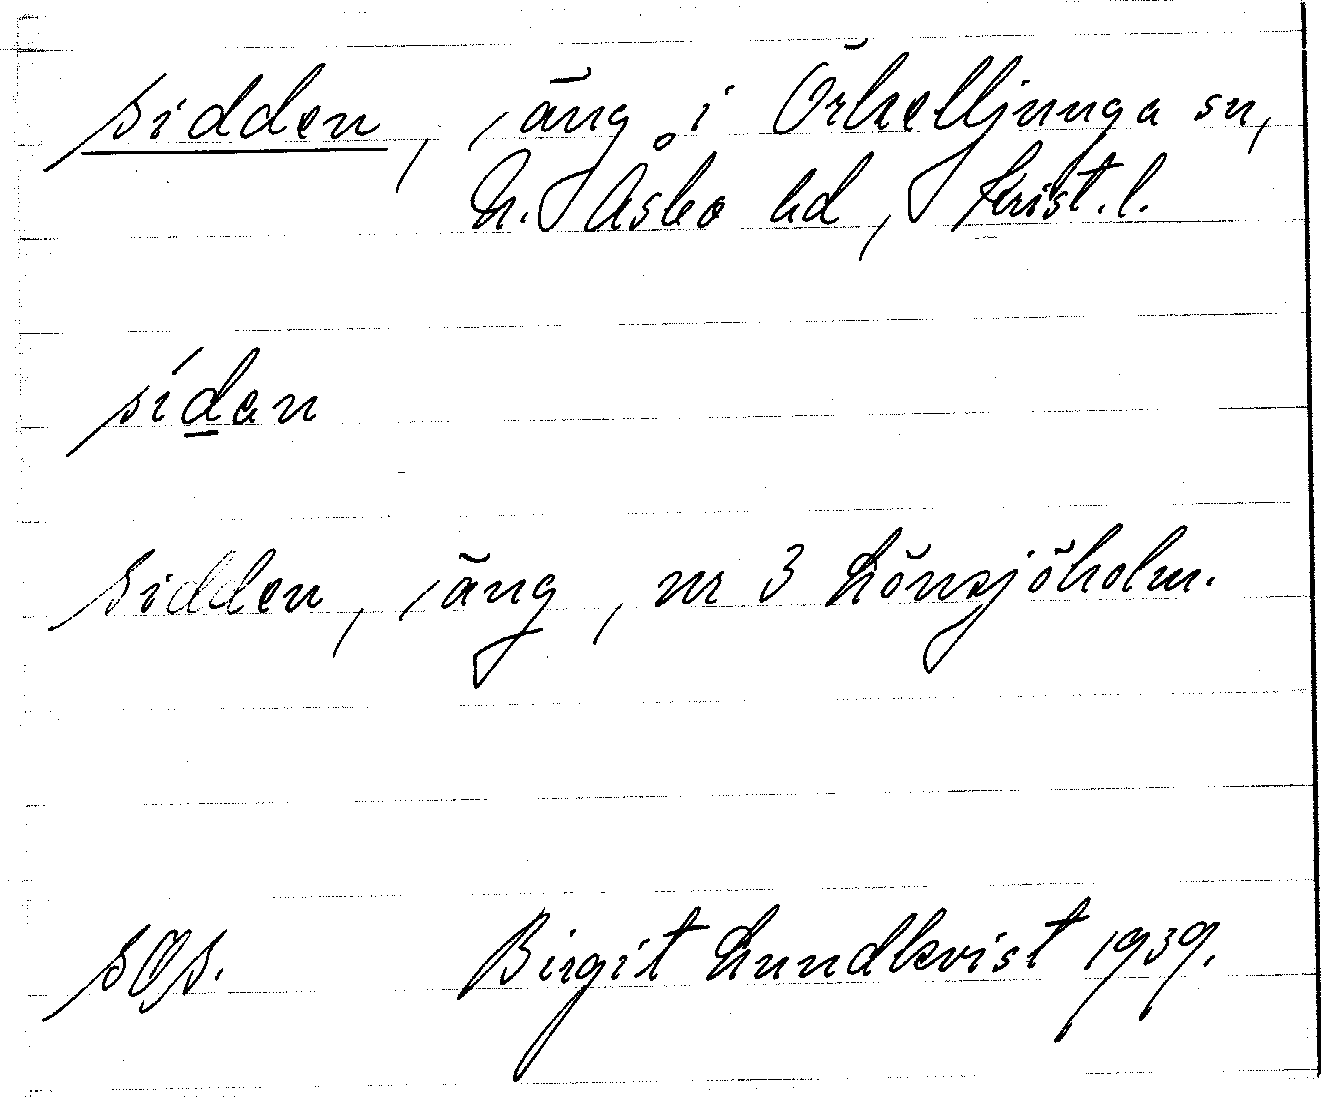 Sidden, äng i Örkelljunga sn,
N. Åsbo hd, Krist. l.
sídan
Sidden, äng, nr 3 Lönsjöholm.
SOS. Birgit Lundkvist 1939.